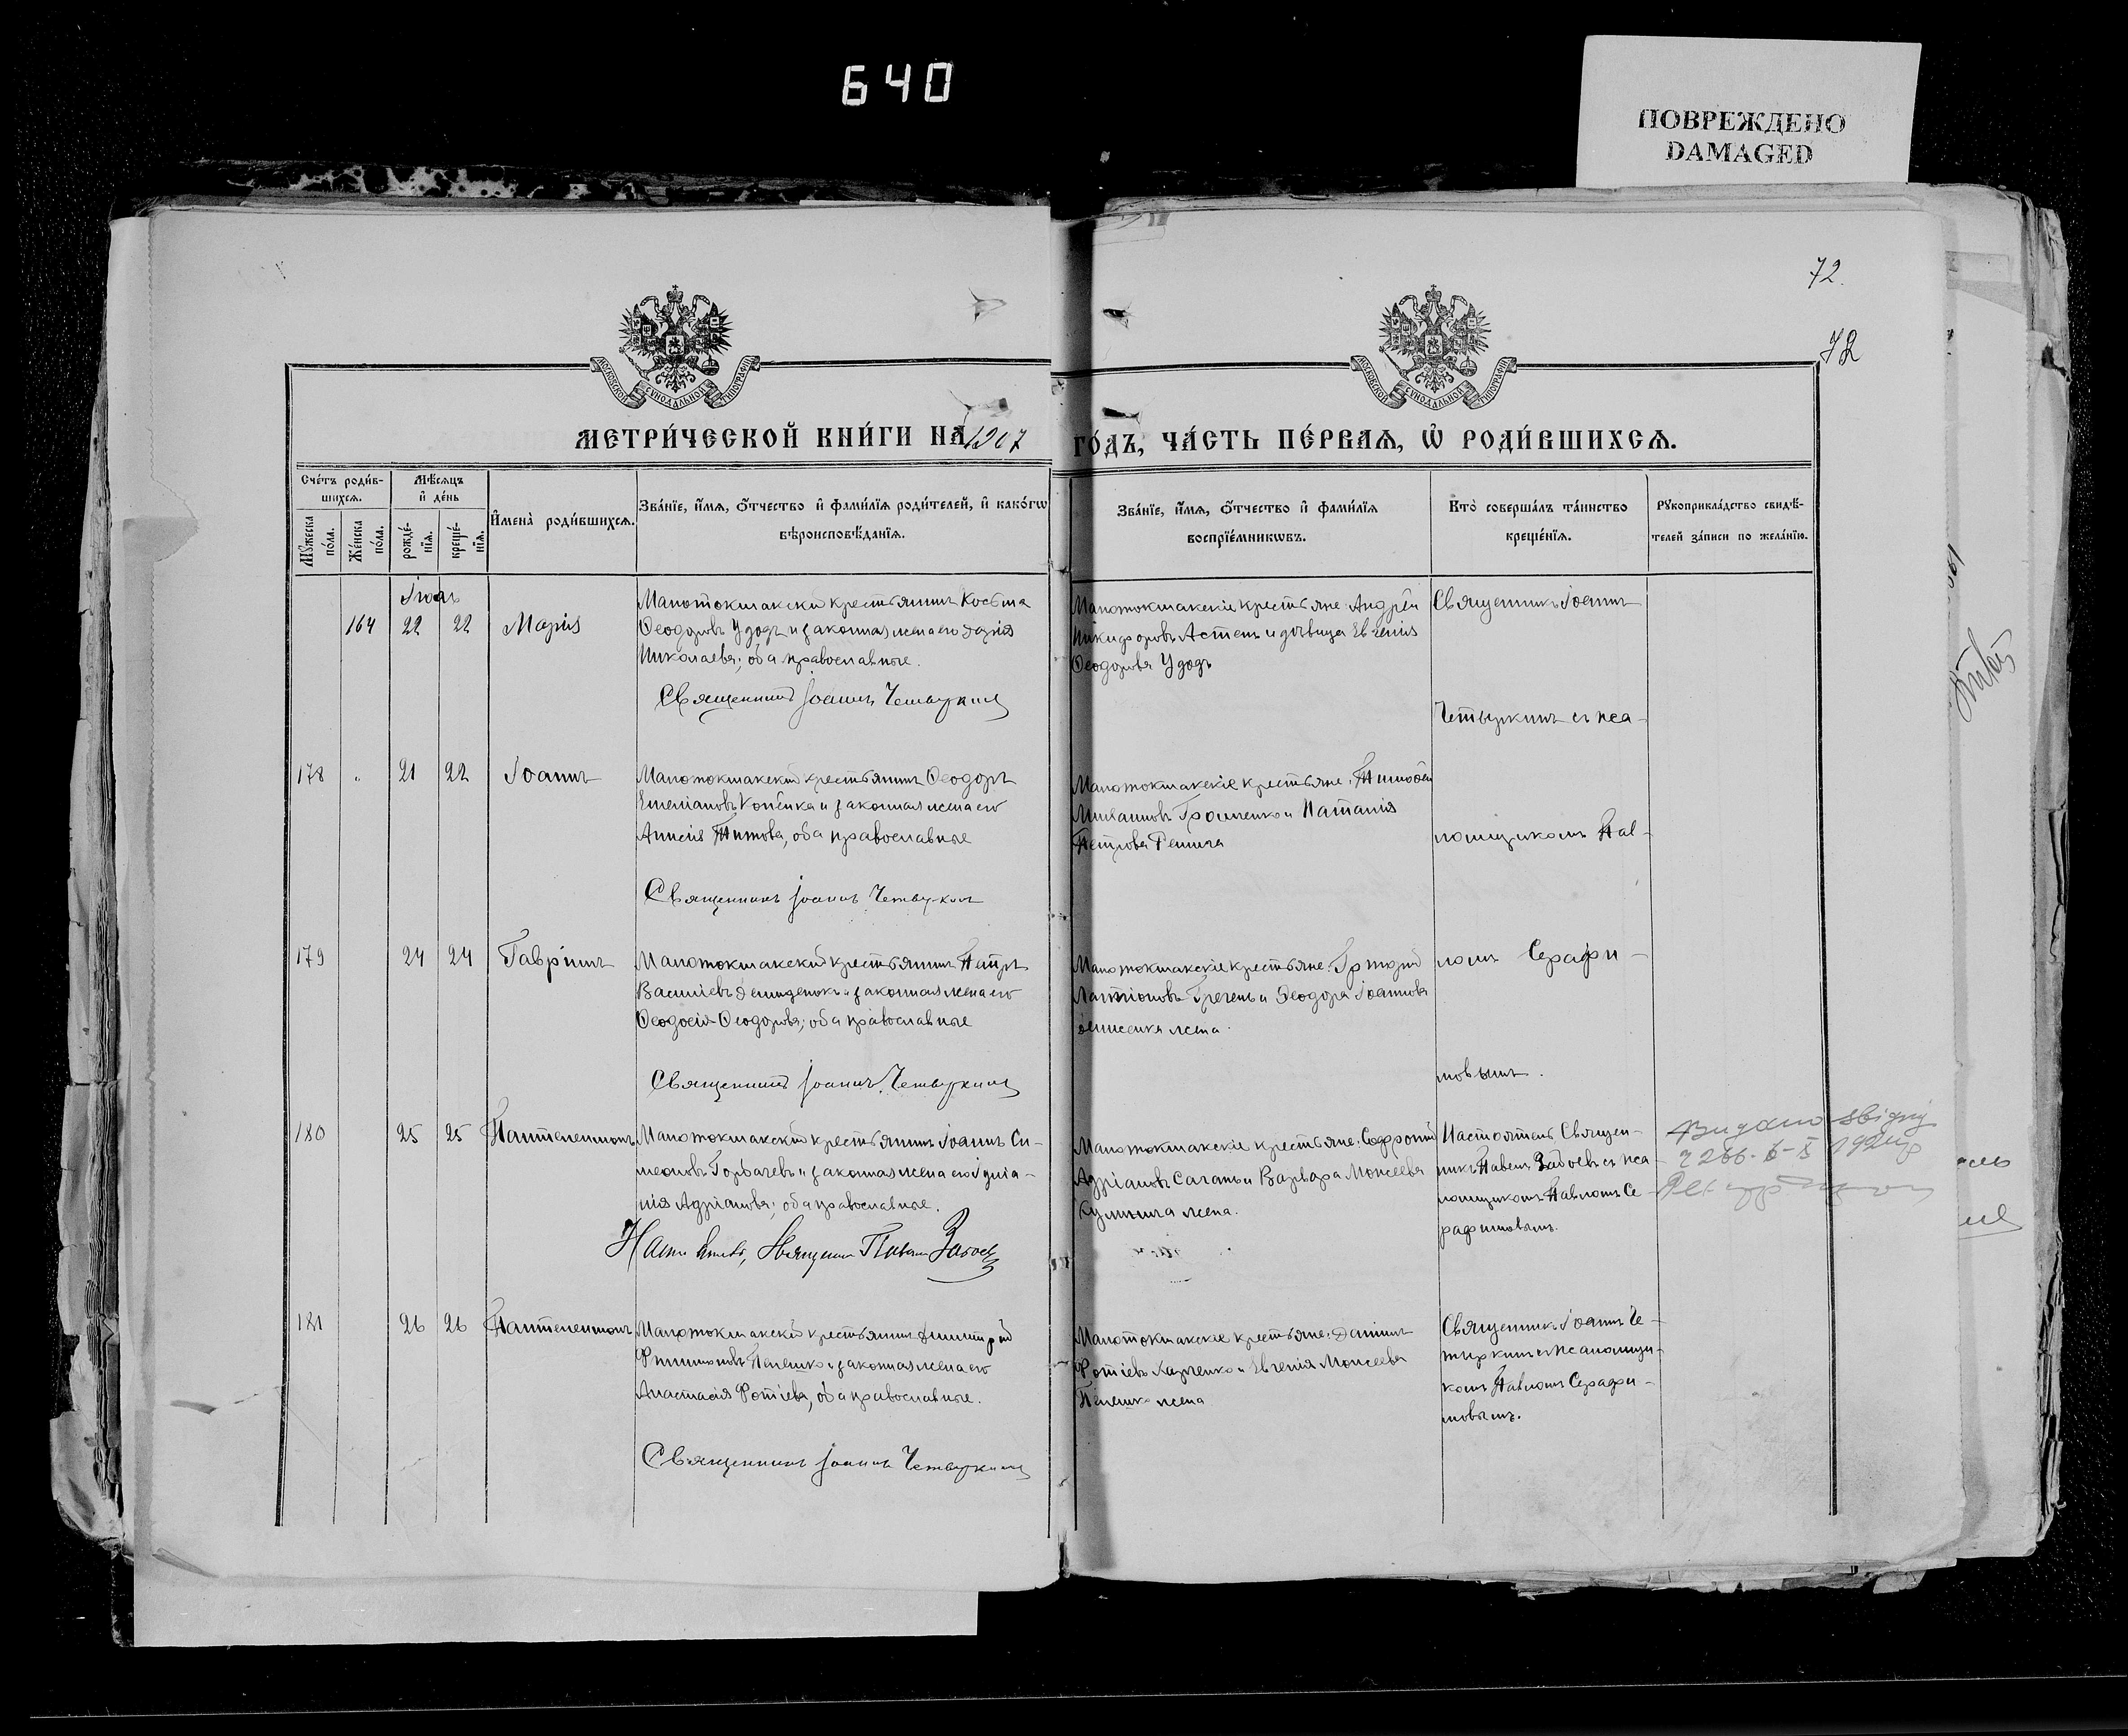 640
ПОВРЕЖДЕНО
DAMAGED
72.
72
МОСКОВСКОЙ СѴНОДАЛЬНОЙ ТИПОГРАФІИ
МОСКОВСКОЙ СѴНОДАЛЬНОЙ ТИПОГРАФІИ
МЕТРИ́ЧЕСКОЙ КНИ́ГИ НА 1907 ГО́ДЪ, ЧА́СТЬ ПЕ́РВАѦ, Ѡ҆ РОДИ́ВШИХСѦ.
Сче́тъ роди́в-
шихсѧ.
Мѣ́сѧцъ
и҆ де́нь
Мꙋ́жеска
по́ла.
Же́нска
по́ла.
рожде́-
нїѧ.
креще́-
нїѧ.
И҆мена̀ роди́вшихсѧ.
Зва́нїе, и҆́мѧ, ѻ҆́тчество и҆ фами́лїѧ роди́телей, и҆ како́гѡ
вѣроисповѣ́данїѧ.
Зва́нїе, и҆́мѧ, ѻ҆́тчество и҆ фами́лїѧ
воспрїе́мникѡвъ.
Кто̀ соверша́лъ та́инство
креще́нїѧ.
Рꙋкоприкла́дство свидѣ́-
телей за́писи по жела́нїю.
Іюль
164 22 22 Марія
Малотокмакскій крестьянинъ Косьма
Ѳеодоровъ Удодъ и законная жена его Дарія
Николаева; оба православные.
Священникъ Іоаннъ Четыркинъ
Малотокмакскіе крестьяне: Андрей
Никифоровъ Астепъ и дѣвица Евгенія
Ѳеодорова Удодъ
Священникъ Іоаннъ
Четыркинъ съ пса-
178 " 21 22 Іоаннъ
Малотокмакскій крестьянинъ Ѳеодоръ
Емеліановъ Копейка и законная жена его
Анисія Титова, оба православные
Священникъ Іоаннъ Четыркинъ
Малотокмакскіе крестьяне: Тимоѳей
Михаиловъ Громенко и Наталія
Петрова Репича
ломщикомъ Пав-
179 24 24 Гавріилъ
Малотокмакскій крестьянинъ Петръ
Василіевъ Демиденокъ и законная жена его
Ѳеодосія Ѳеодорова; оба православные
Священникъ Іоаннъ Четыркинъ
Малотокмакскіе крестьяне: Григорій
Ларіоновъ Гречень и Ѳеодора Іоаннова
жена.
ломъ Серафи-
мовымъ.
180 25 25 Пантелеимонъ
Малотокмакскій крестьянинъ Іоаннъ Си-
меоновъ Горбачевъ и законная жена его Іуліа-
нія Адріанова; оба православные.
Настоятель, Священникъ Павелъ Забоевъ
Малотокмакскіе крестьяне: Софроній
Адріановъ Сагань и Варвара Моисеева
жена.
Настоятель Священ-
никъ Павелъ Забоевъ съ пса-
ломщикомъ Павломъ Се-
рафимовымъ.
Видано
181 26 26 Пантелеимонъ
Малотокмакскій крестьянинъ Димитрій
Филипповъ Пелешко и законная жена его
Анастасія Фотіева, оба православные.
Священникъ Іоаннъ Четыркинъ
Малотокмакскіе крестьяне: Даніилъ
Фотіевъ Харченко и Евгенія Моисеева
Пелешко жена
Священникъ Іоаннъ Че-
тыркинъ съ псаломщи-
комъ Павломъ Серафи-
мовымъ.